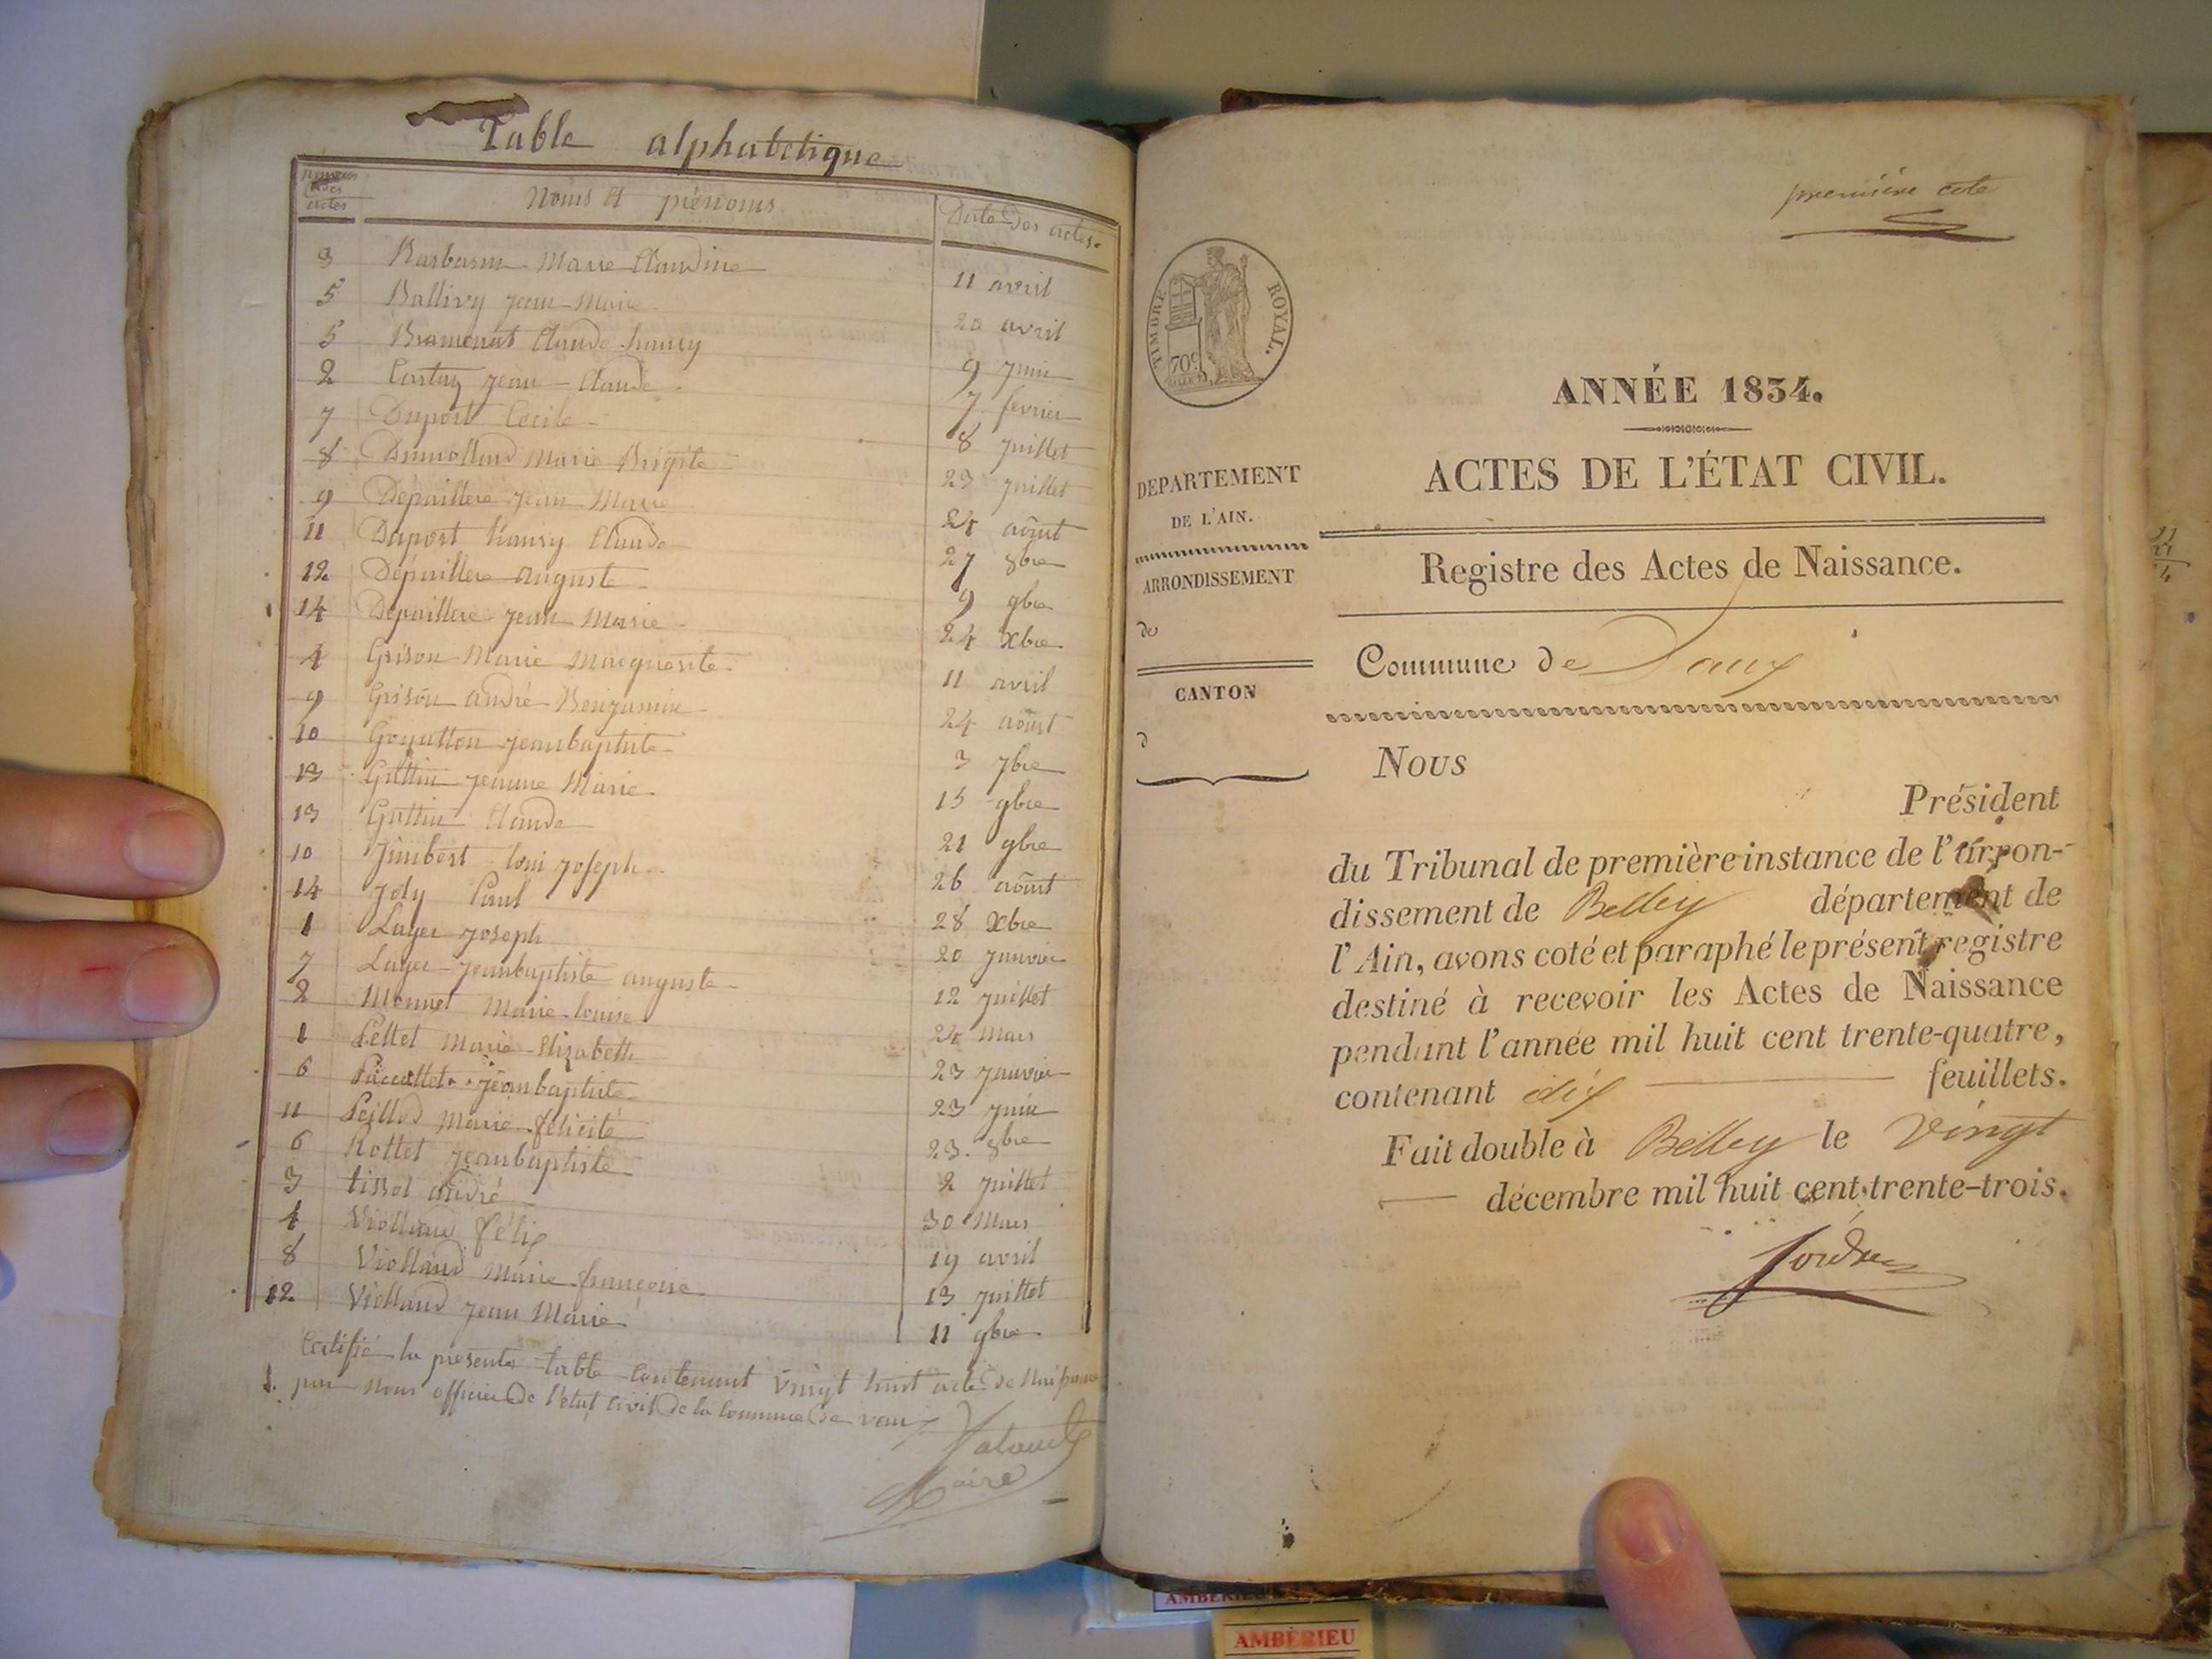 Table alphabétique
numéros des actes
Noms et prénoms
Date des actes
3 Marie Claudine 11 avril
5 Ballivy jean Marie 20 avril
5 Bramerat Claude 9 juin
2 jean Claude 7 fevrier
7 Duport Cecile 8 juillet
8 Marie Brigite 23 juillet
9 Depaillere jean Marie 24 août
11 Duport Claude 27 8bre
12 Depaillere auguste 9 9bre
14 Depaillere jean Marie 24 Xbre
4 Grison Marie Marguerite 11 avril
9 Grison andré Benjamin 24 août
10 jeanbaptiste 3 7bre
13 Guttin jeanne Marie 15 9bre
13 Guttin Claude 21 9bre
10 Jimbert loui joseph 26 août
14 Joly Paul 28 Xbre
1 Layer joseph 20 janvier
7 Layer jeanbaptiste auguste 12 juillet
2 Monnet Marie louise 24 Mars
1 Pellet Marie Elizabeth 23 janvier
6 jeanbaptiste 23 juin
11 Peillod Marie félicité 23 8bre
6 Rottet jeanbaptiste 2 juillet
3 tissot andré 30 Mars
4 Viollaud félix 19 avril
8 Viollaud Marie françoise 13 juillet
12 Viollaud jean Marie 11 9bre
Certifié la presente table contenant vingt huit acte de Naissance
par nous officier de l'etat civil de la commune de vaux
Maire
première cote
TIMBRE ROYAL.
70c
ANNÉE 1834.
ACTES DE L'ÉTAT CIVIL.
DEPARTEMENT
DE L'AIN.
ARRONDISSEMENT
de
CANTON
d
Registre des Actes de Naissance.
Commune de Vaux
Nous
Président
du Tribunal de première instance de l'arron-
dissement de Belley département de
l'Ain, avons coté et paraphé le présent registre
destiné à recevoir les Actes de Naissance
pendant l'année mil huit cent trente-quatre,
contenant dix feuillets.
Fait double à Belley le vingt
décembre mil huit cent trente-trois.
AMBÉRIEU
AMBÉRIEU